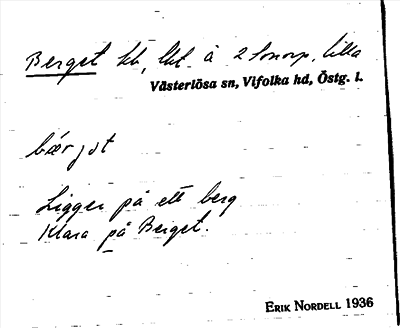 Berget lht, lht å 2 Sonorp, lilla
Västerlösa sn, Vifolka hd, Östg. l.
bærjət
Ligger på ett berg
Klara på Berget.
ERIK NORDELL 1936